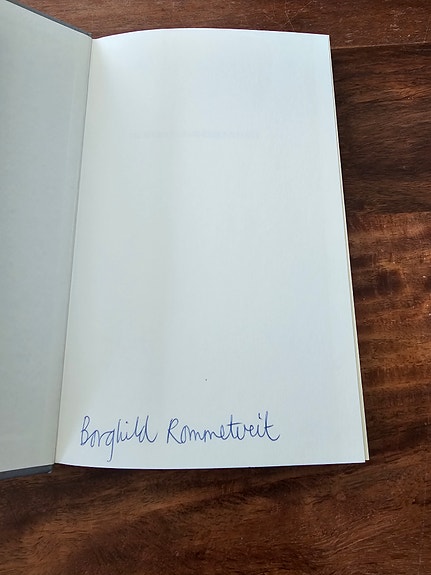 Borghild Rommetveit